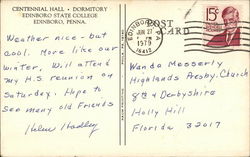 CENTENNIAL HALL - DORMITORY
EDINBORO STATE COLLEGE
EDINBORO, PENNA.
Weather nice - but
cool. More like our
winter. Will attend
my H.S reunion on
Saturday. Hope to
see many old Friends
Helen Hadley
POST CARD
EDINBORO, PA
JUN 27
1979
16412
15¢
Wanda Messerly
Highlands Presby. Church
8th & Derbyshire
Holly Hill
Florida 32017